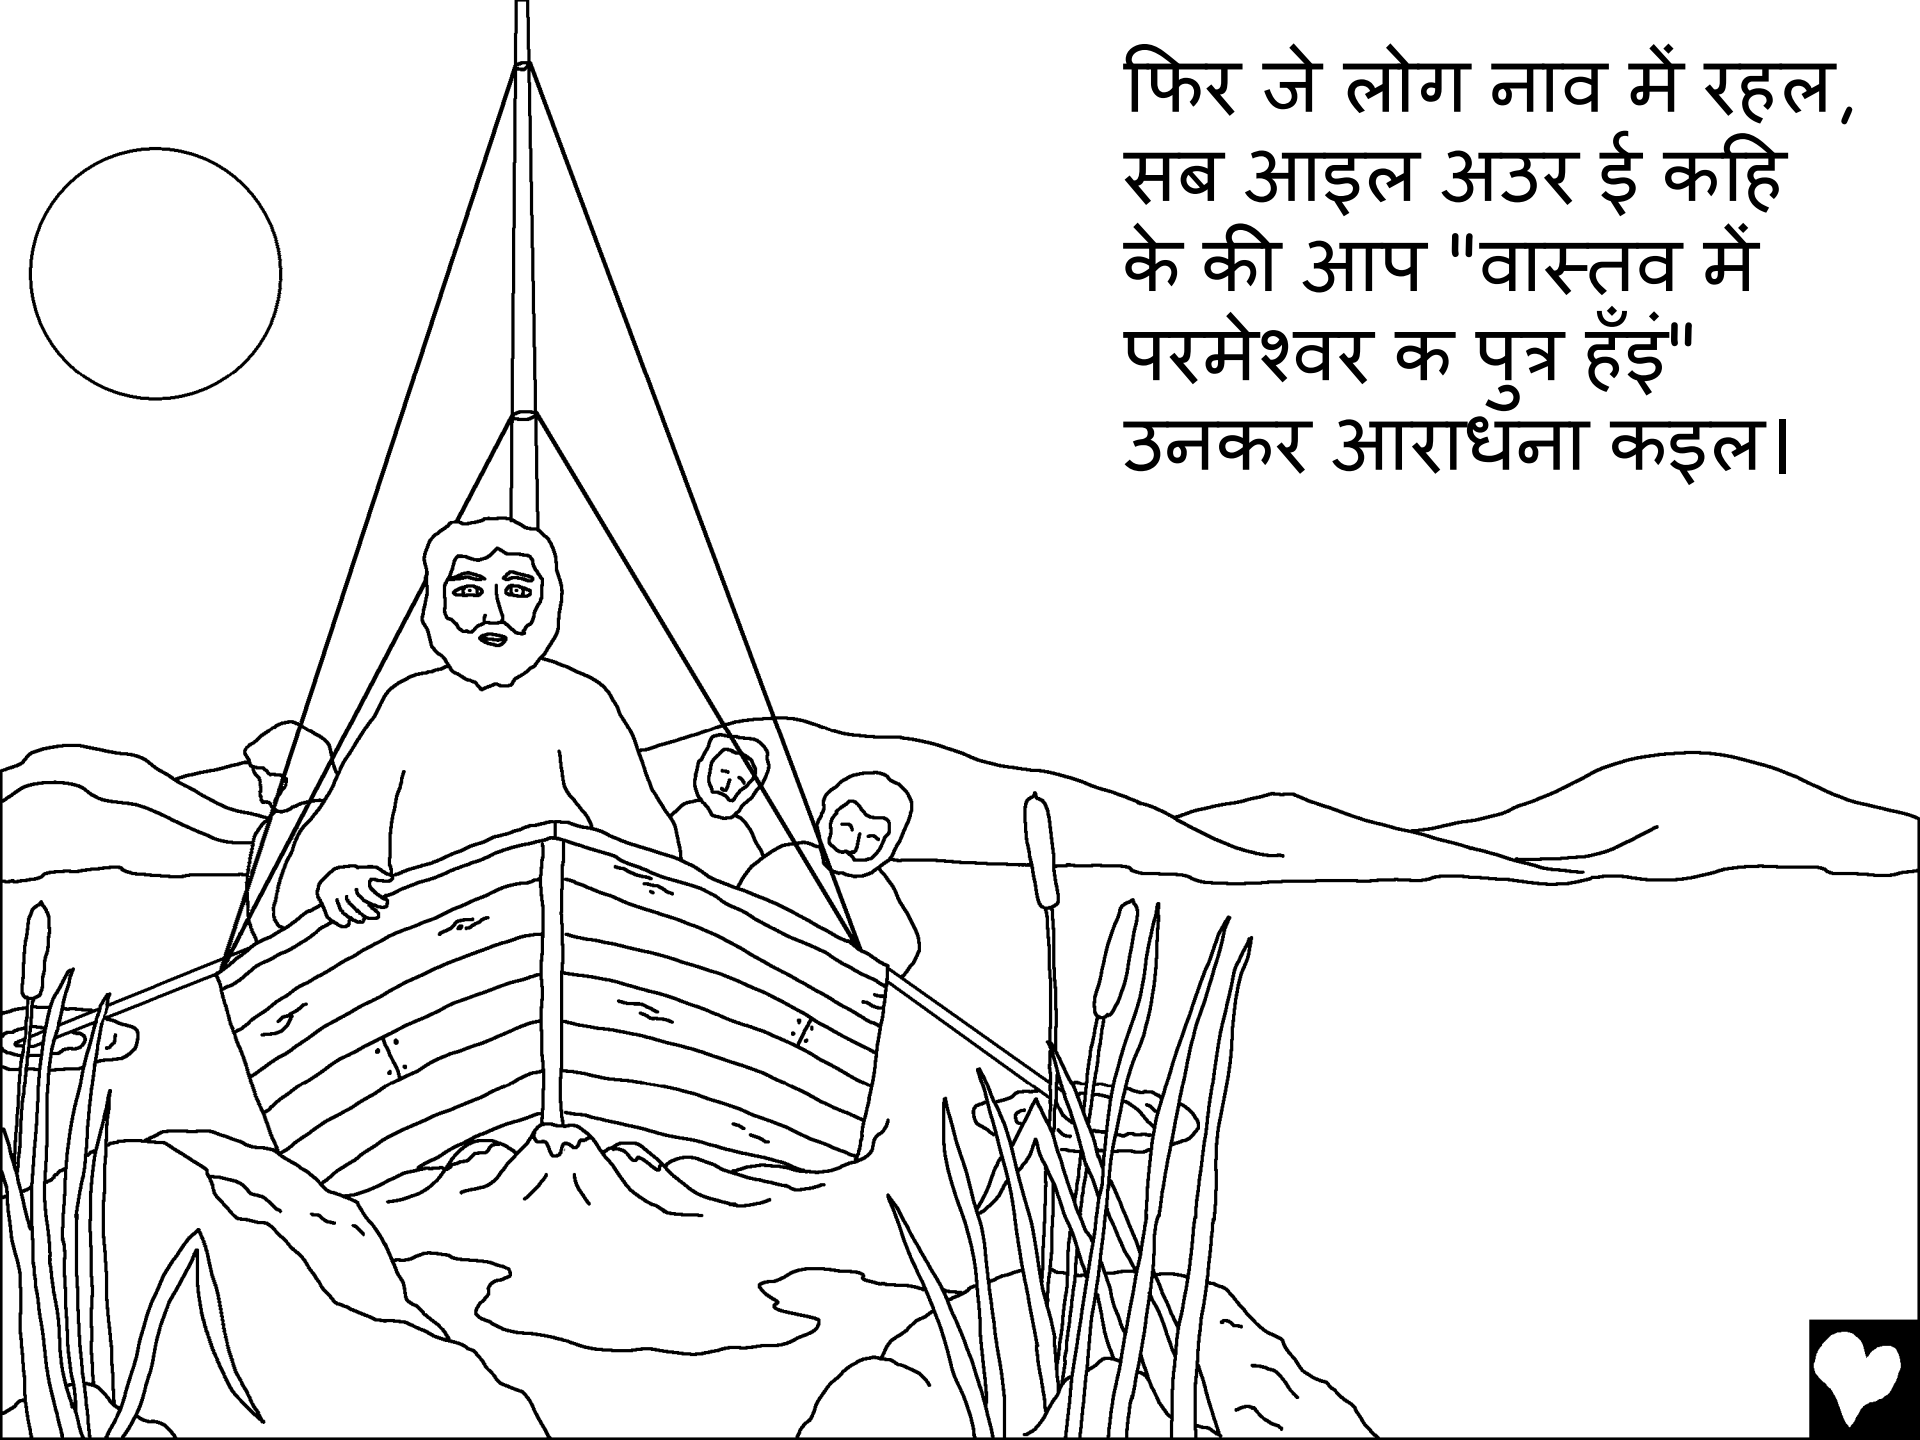 फिर जे लोग नाव में रहल,
सब आइल अउर ई कहि
के की आप "वास्तव में
परमेश्वर क पुत्र हँइं"
उनकर आराधना कइल।